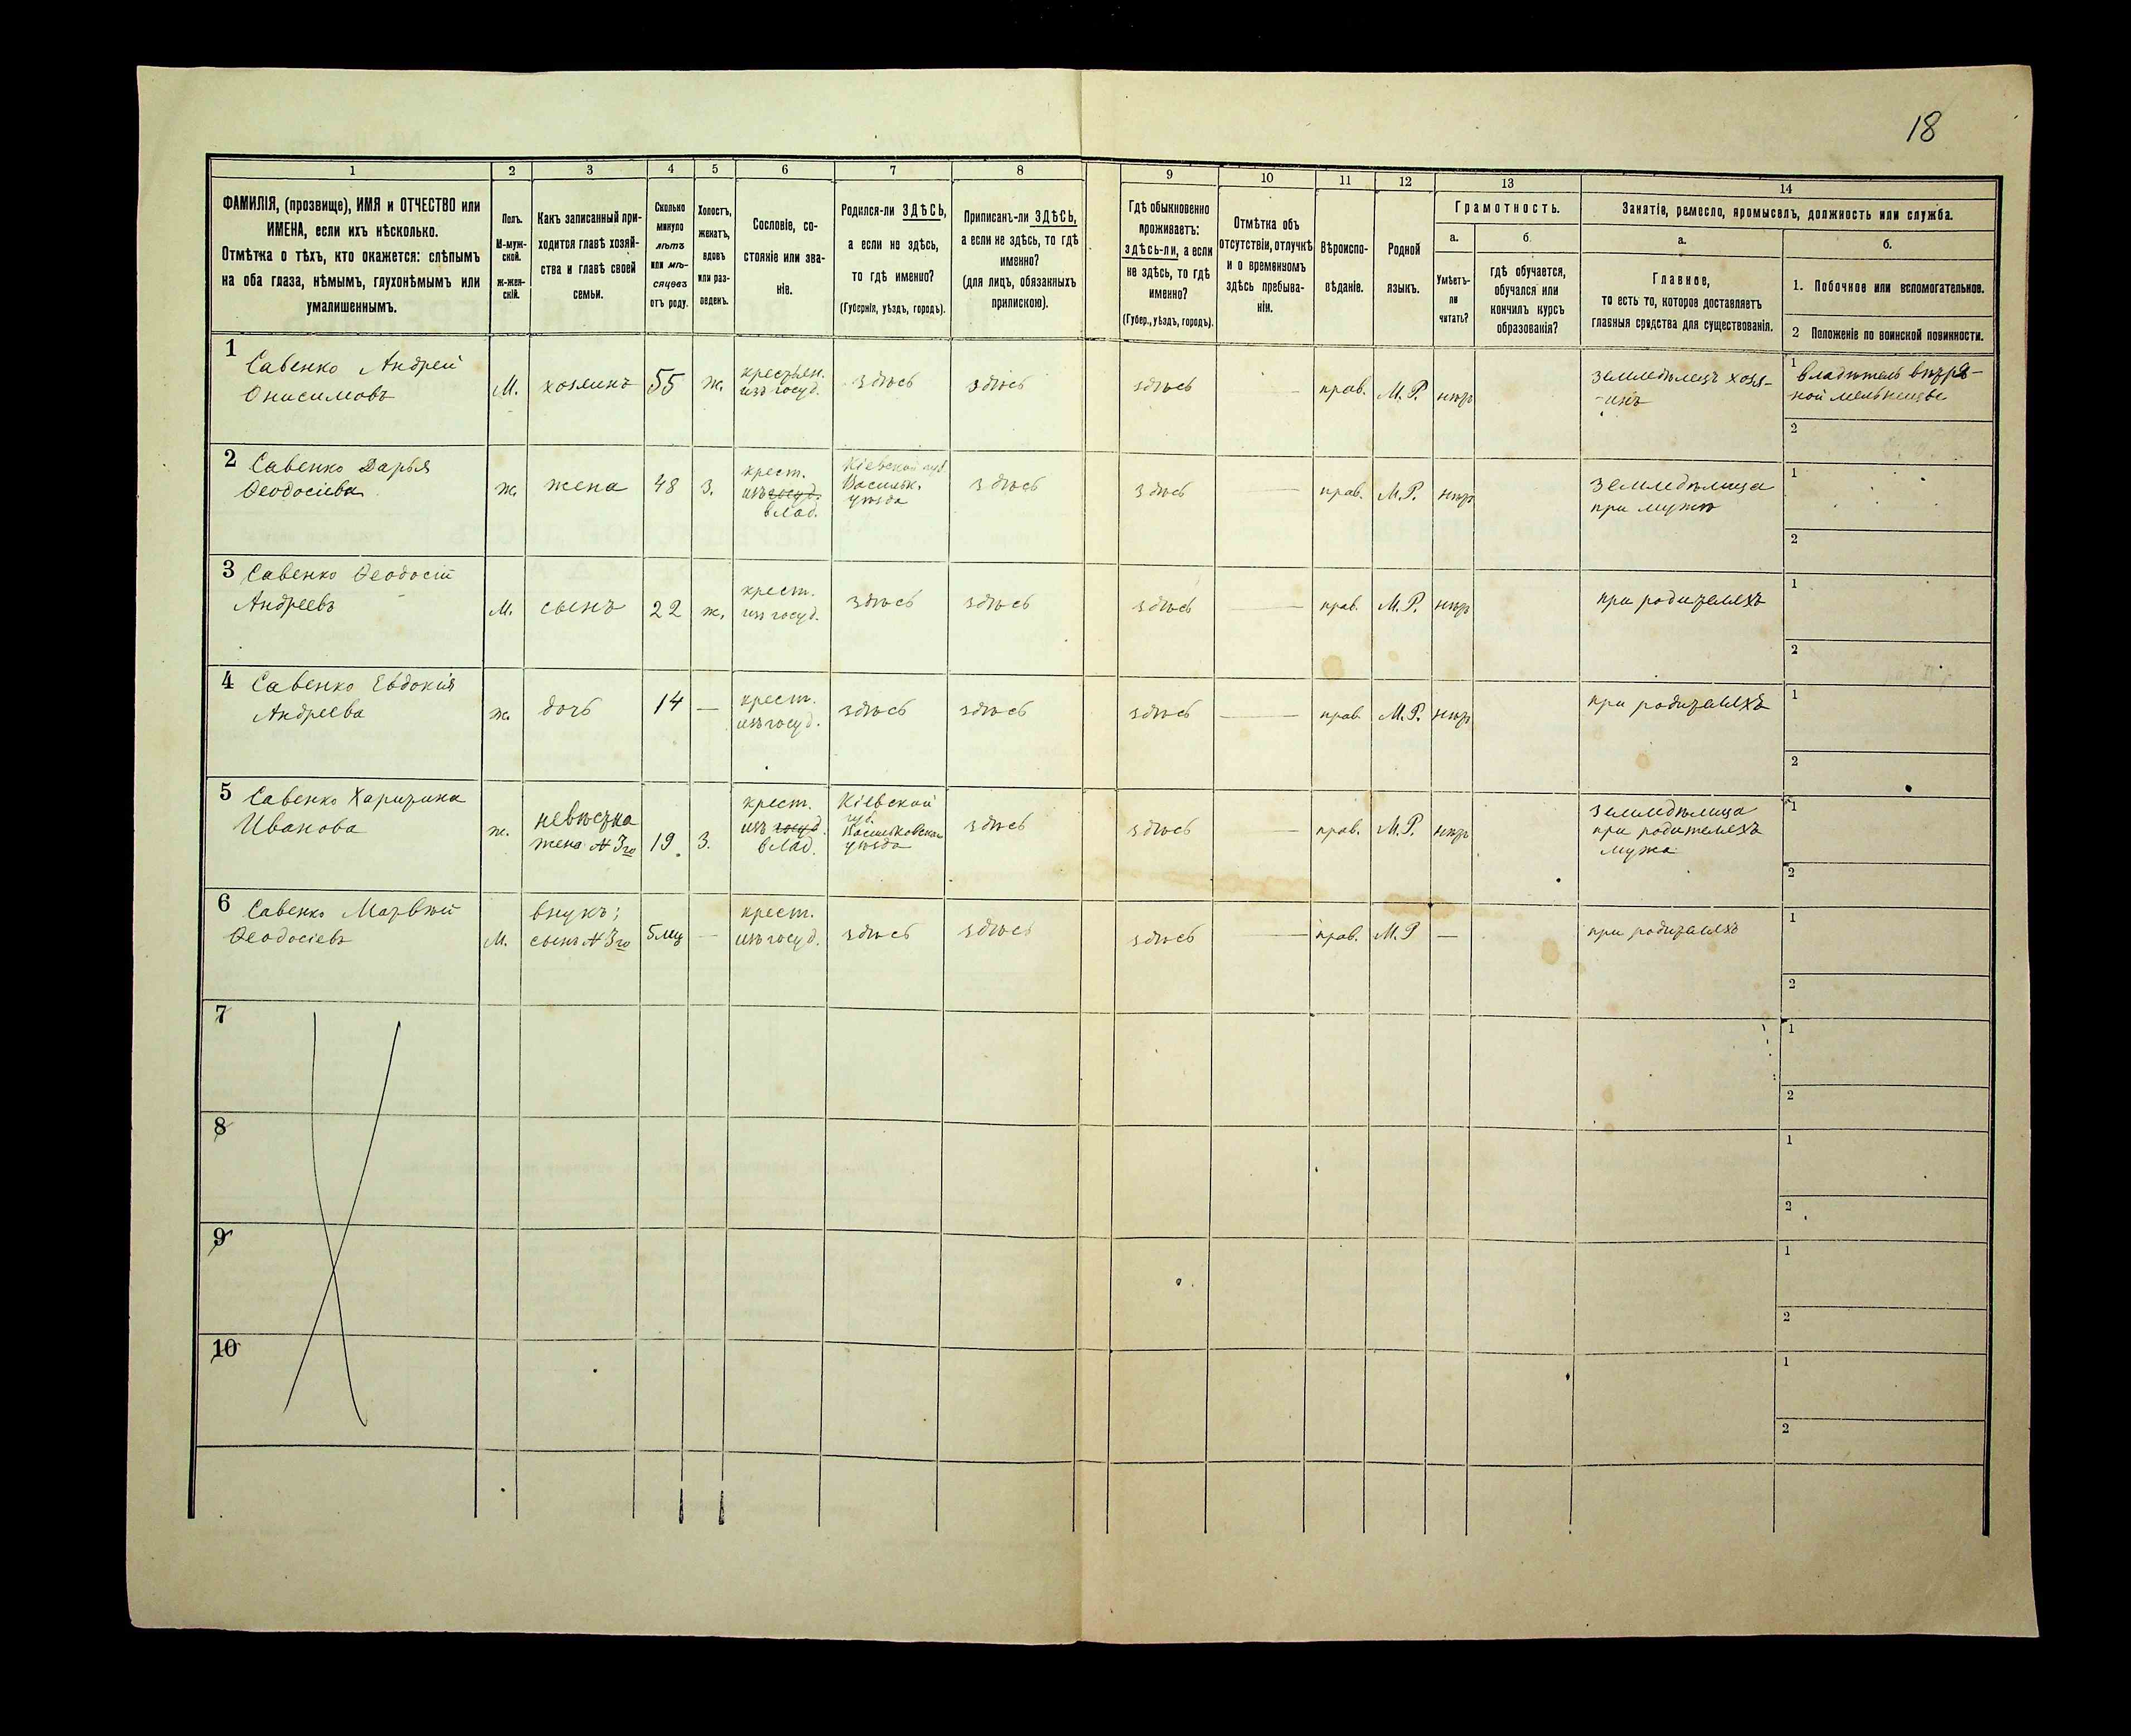 18
1 2 3 4 5 6 7 8 9 10 11 12 13 14
ФАМИЛІЯ, (прозвище), ИМЯ и ОТЧЕСТВО или
ИМЕНА, если ихъ нѣсколько.
Отмѣтка о тѣхъ, кто окажется: слѣпымъ
на оба глаза, нѣмымъ, глухонѣмымъ или
умалишеннымъ.
Полъ.
М-муж-
ской.
ж-жен-
скій.
Какъ записанный при-
ходится главѣ хозяй-
ства и главѣ своей
семьи.
Сколько
минуло
лѣтъ
или мѣ-
сяцевъ
отъ роду.
Холостъ,
женатъ,
вдовъ
или раз-
веденъ.
Сословіе, со-
стояніе или зва-
ніе.
Родился-ли ЗДѢСЬ,
а если не здѣсь,
то гдѣ именно?
(Губернія, уѣздъ, городъ).
Приписанъ-ли ЗДѢСЬ,
а если не здѣсь, то гдѣ
именно?
(для лицъ, обязанныхъ
припискою).
Гдѣ обыкновенно
проживаетъ:
здѣсь-ли, а если
не здѣсь, то гдѣ
именно?
(Губер., уѣздъ, городъ).
Отмѣтка объ
отсутствіи, отлучкѣ
и о временномъ
здѣсь пребыва-
ніи.
Вѣроиспо-
вѣданіе.
Родной
языкъ.
Грамотность.
а.
Умѣетъ-
ли
читать?
б.
гдѣ обучается,
обучался или
кончилъ курсъ
образованія?
Занятіе, ремесло, промыселъ, должность или служба.
а.
Главное,
то есть то, которое доставляетъ
главныя средства для существованія.
б.
1. Побочное или вспомогательное.
2 Положеніе по воинской повинности.
1 Савенко Андрей
Онисимовъ
М.
хозяинъ
55
ж.
крестьян.
изъ госуд.
здѣсь
здѣсь
здѣсь
—
прав.
М.Р.
нѣтъ
земледѣлецъ хозя-
-инъ
1 владѣтель вѣтря-
ной мельницы
2
2 Савенко Дарья
Ѳеодосіева
ж.
жена
48
з.
крест.
изъ госуд.
влад.
Кіевской губ.
Васильк.
уѣзда
здѣсь
здѣсь
—
прав.
М.Р.
нѣтъ
земледѣлица
при мужѣ
1
2
3 Савенко Ѳеодосій
Андреевъ
М.
сынъ
22
ж.
крест.
изъ госуд.
здѣсь
здѣсь
здѣсь
—
прав.
М.Р.
нѣтъ
при родителяхъ
1
2
4 Савенко Евдокія
Андреева
ж.
дочь
14
—
крест.
изъ госуд.
здѣсь
здѣсь
здѣсь
—
прав.
М.Р.
нѣтъ
при родителяхъ
1
2
5 Савенко Харитина
Иванова
ж.
невѣстка
жена № 3го
19
З.
крест.
изъ госуд.
влад.
Кіевской
губ.
Васильковскаго
уѣзда
здѣсь
здѣсь
—
прав.
М.Р.
нѣтъ
земледѣлица
при родителяхъ
мужа
1
2
6 Савенко Матвѣй
Ѳеодосіевъ
М.
внукъ;
сынъ № 3го
5 мц
—
крест.
изъ госуд.
здѣсь
здѣсь
здѣсь
—
прав.
М.Р
—
при родителяхъ
1
2
7
1
2
8
1
2
9
1
2
10
1
2